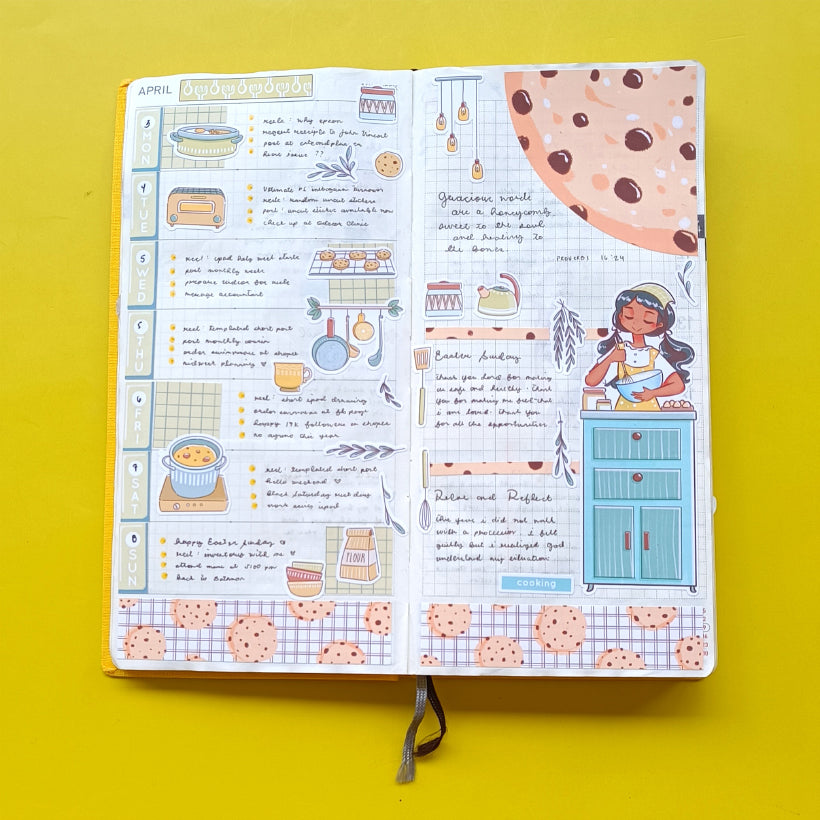 APRIL
3
MON
reels : why epson
request receipts to John Vincent
4
TUE
Ultimate #1 instagram
reels : random uncut stickers
post : uncut sticker available now
check up at Clinic
5
WED
post monthly
prepare for
message accountant
THU
reel : templated short post
post monthly
order at shopee
midweek planning ♡
6
FRI
reel : short ipad drawing
order at fb page
happy 19k followers in shopee
no this year
SAT
reel : templated short post
hello weekend ♡
Black Saturday
8
SUN
happy Easter Sunday
attend mass at 5:00 pm
back to
FLOUR
gracious words
are a honeycomb
sweet to the soul
and healing to
the bones.
PROVERBS 16:24
Easter Sunday
thank you Lord for making
us safe and healthy. thank
you for making me feel that
i am loved. thank you
for all the opportunities
Relax and Reflect
this year i did not walk
with a procession. i felt
guilty but i realized God
understand my situation
cooking